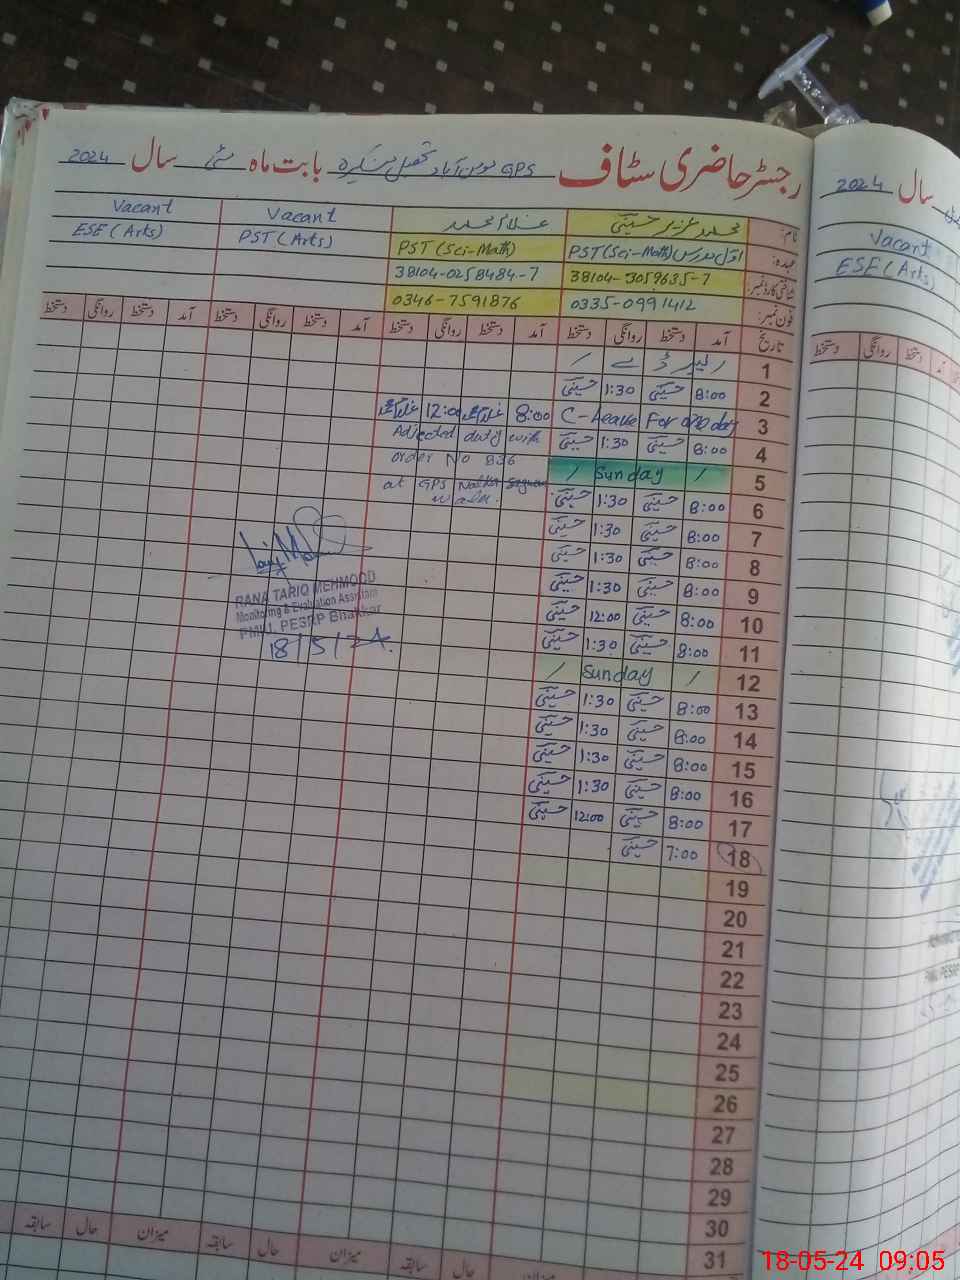 رجسٹر حاضری سٹاف GPS مومن آباد تحصیل منکیرہ بابت ماہ مئی سال 2024
نام: محمد عزیر حسینی غلام محمد Vacant Vacant
عہدہ: اول مدرس PST(Sci-Math) PST(Sci-Math) PST(Arts) ESE(Arts)
شناختی کارڈ نمبر: 38104-3059635-7 38104-0258484-7
فون نمبر: 0335-0991412 0346-7591876
تاریخ آمد دستخط روانگی دستخط آمد دستخط روانگی دستخط آمد دستخط روانگی دستخط آمد دستخط روانگی دستخط
1 / لیبر ڈے /
2 8:00 حسینی 1:30 حسینی
3 C-Leave For one day 8:00 غلام محمد 12:00 غلام محمد
4 8:00 حسینی 1:30 حسینی Adjected duty with
order No 836
5 / Sunday /
at GPS
6 8:00 حسینی 1:30 حسینی
7 8:00 حسینی 1:30 حسینی
8 8:00 حسینی 1:30 حسینی
9 8:00 حسینی 1:30 حسینی
10 8:00 حسینی 12:00 حسینی
11 8:00 حسینی 1:30 حسینی
12 / Sunday /
13 8:00 حسینی 1:30 حسینی
14 8:00 حسینی 1:30 حسینی
15 8:00 حسینی 1:30 حسینی
16 8:00 حسینی 1:30 حسینی
17 8:00 حسینی 12:00 حسینی
18 7:00 حسینی
19
20
21
22
23
24
25
26
27
28
29
30
31
میزان حال سابقہ میزان حال سابقہ میزان حال سابقہ
RANA TARIQ MEHMOOD
Monitoring & Evaluation Assistant
PMIU, PESRP Bhakkar
18/5/24.
سال 2024
Vacant
ESE(Arts)
دستخط روانگی دستخط
PMIU PESRP
18-05-24 09:05